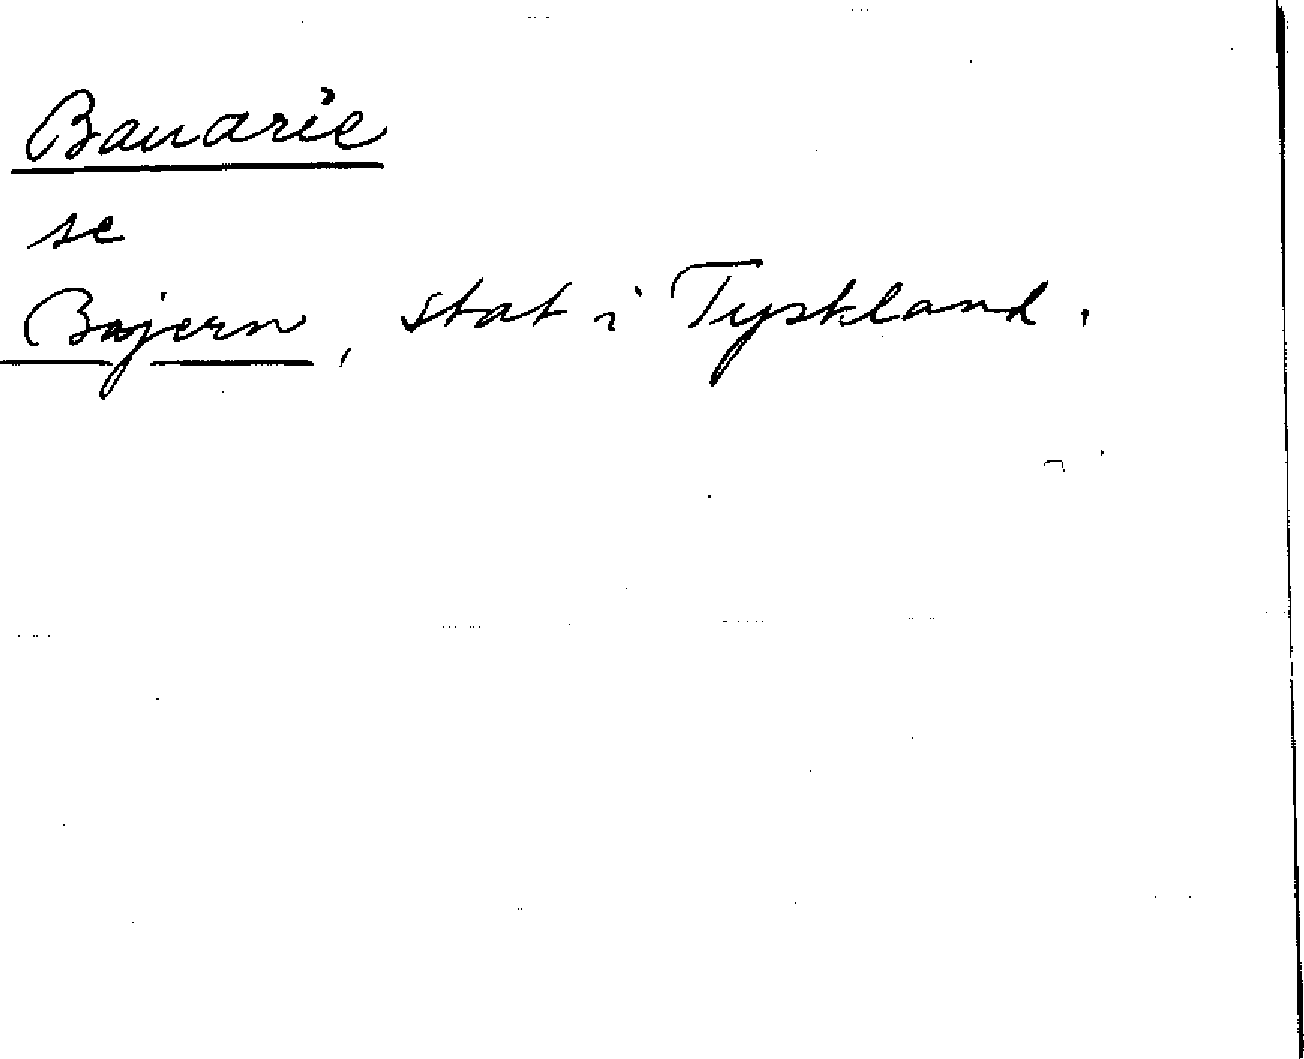 Bauarie
se
Bajern, stat i Tyskland.